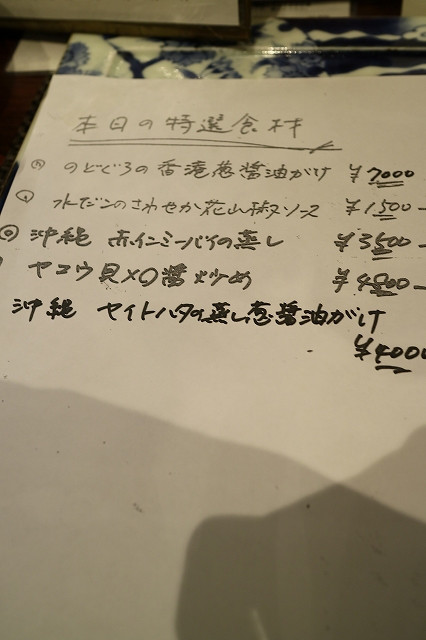 本日の特選食材
のどぐろの香港葱醤油がけ ¥7000
水ダコのさわやか花山椒ソース ¥1500-
沖縄 赤インミーバイの蒸し ¥3500-
ヤコウ貝XO醤炒め ¥4800-
沖縄 ヤイトハタの蒸し葱醤油がけ
¥4000